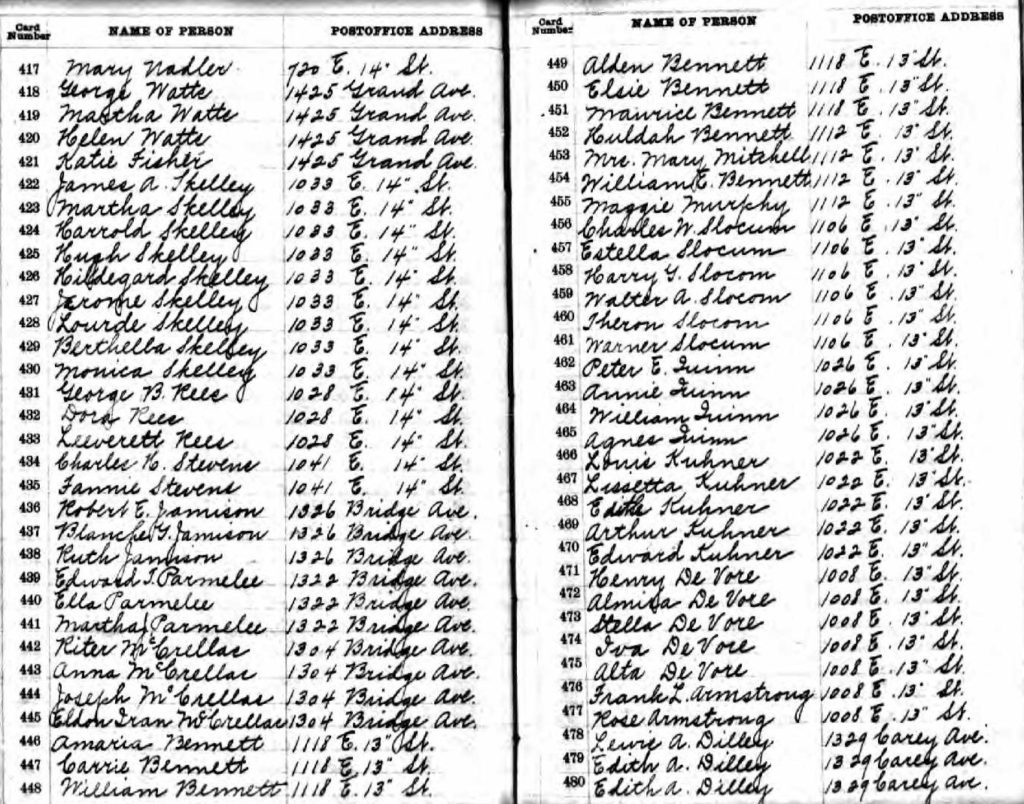 Card Number NAME OF PERSON POSTOFFICE ADDRESS
417 Mary Nadler 720 E. 14" St.
418 George Watts 1425 Grand Ave.
419 Martha Watts 1425 Grand Ave.
420 Helen Watts 1425 Grand Ave.
421 Katie Fisher 1425 Grand Ave.
422 James A. Skelley 1033 E. 14" St.
423 Martha Skelley 1033 E. 14" St.
424 Harrold Skelley 1033 E. 14" St.
425 Hugh Skelley 1033 E. 14" St.
426 Hildegard Skelley 1033 E. 14" St.
427 Jerome Skelley 1033 E. 14" St.
428 Lourde Skelley 1033 E. 14" St.
429 Berthella Skelley 1033 E. 14" St.
430 Monica Skelley 1033 E. 14" St.
431 George B. Rees 1028 E. 14" St.
432 Dora Rees 1028 E. 14" St.
433 Leeverett Rees 1028 E. 14" St.
434 Charles H. Stevens 1041 E. 14" St.
435 Fannie Stevens 1041 E. 14" St.
436 Robert E. Jamison 1326 Bridge Ave.
437 Blanche G. Jamison 1326 Bridge Ave.
438 Ruth Jamison 1326 Bridge Ave.
439 Edward T. Parmelee 1322 Bridge Ave.
440 Ella Parmelee 1322 Bridge Ave.
441 Martha J Parmelee 1322 Bridge Ave.
442 Riter McCrellas 1304 Bridge Ave.
443 Anna McCrellas 1304 Bridge Ave.
444 Joseph McCrellas 1304 Bridge Ave.
445 Eldon Iran McCrellas 1304 Bridge Ave.
446 Amaria Bennett 1118 E. 13" St.
447 Carrie Bennett 1118 E. 13" St.
448 William Bennett 1118 E. 13" St.
Card Number NAME OF PERSON POSTOFFICE ADDRESS
449 Alden Bennett 1118 E. 13" St.
450 Elsie Bennett 1118 E. 13" St.
451 Maurice Bennett 1118 E. 13" St.
452 Huldah Bennett 1112 E. 13" St.
453 Mrs. Mary Mitchell 1112 E. 13" St.
454 William E. Bennett 1112 E. 13" St.
455 Maggie Murphy 1112 E. 13" St.
456 Charles W. Slocum 1106 E. 13" St.
457 Estella Slocum 1106 E. 13" St.
458 Harry G. Slocom 1106 E. 13" St.
459 Walter A. Slocom 1106 E. 13" St.
460 Theron Slocom 1106 E. 13" St.
461 Warner Slocum 1106 E. 13" St.
462 Peter E. Quinn 1026 E. 13" St.
463 Annie Quinn 1026 E. 13" St.
464 William Quinn 1026 E. 13" St.
465 Agnes Quinn 1026 E. 13" St.
466 Louis Kuhner 1022 E. 13" St.
467 Lissetta Kuhner 1022 E. 13" St.
468 Edith Kuhner 1022 E. 13" St.
469 Arthur Kuhner 1022 E. 13" St.
470 Edward Kuhner 1022 E. 13" St.
471 Henry De Vore 1008 E. 13" St.
472 Almira De Vore 1008 E. 13" St.
473 Stella De Vore 1008 E. 13" St.
474 Iva De Vore 1008 E. 13" St.
475 Alta De Vore 1008 E. 13" St.
476 Frank L. Armstrong 1008 E. 13" St.
477 Rose Armstrong 1008 E. 13" St.
478 Lewis A. Dilley 1329 Carey Ave.
479 Edith A. Dilley 1329 Carey Ave.
480 Edith A. Dilley 1329 Carey Ave.